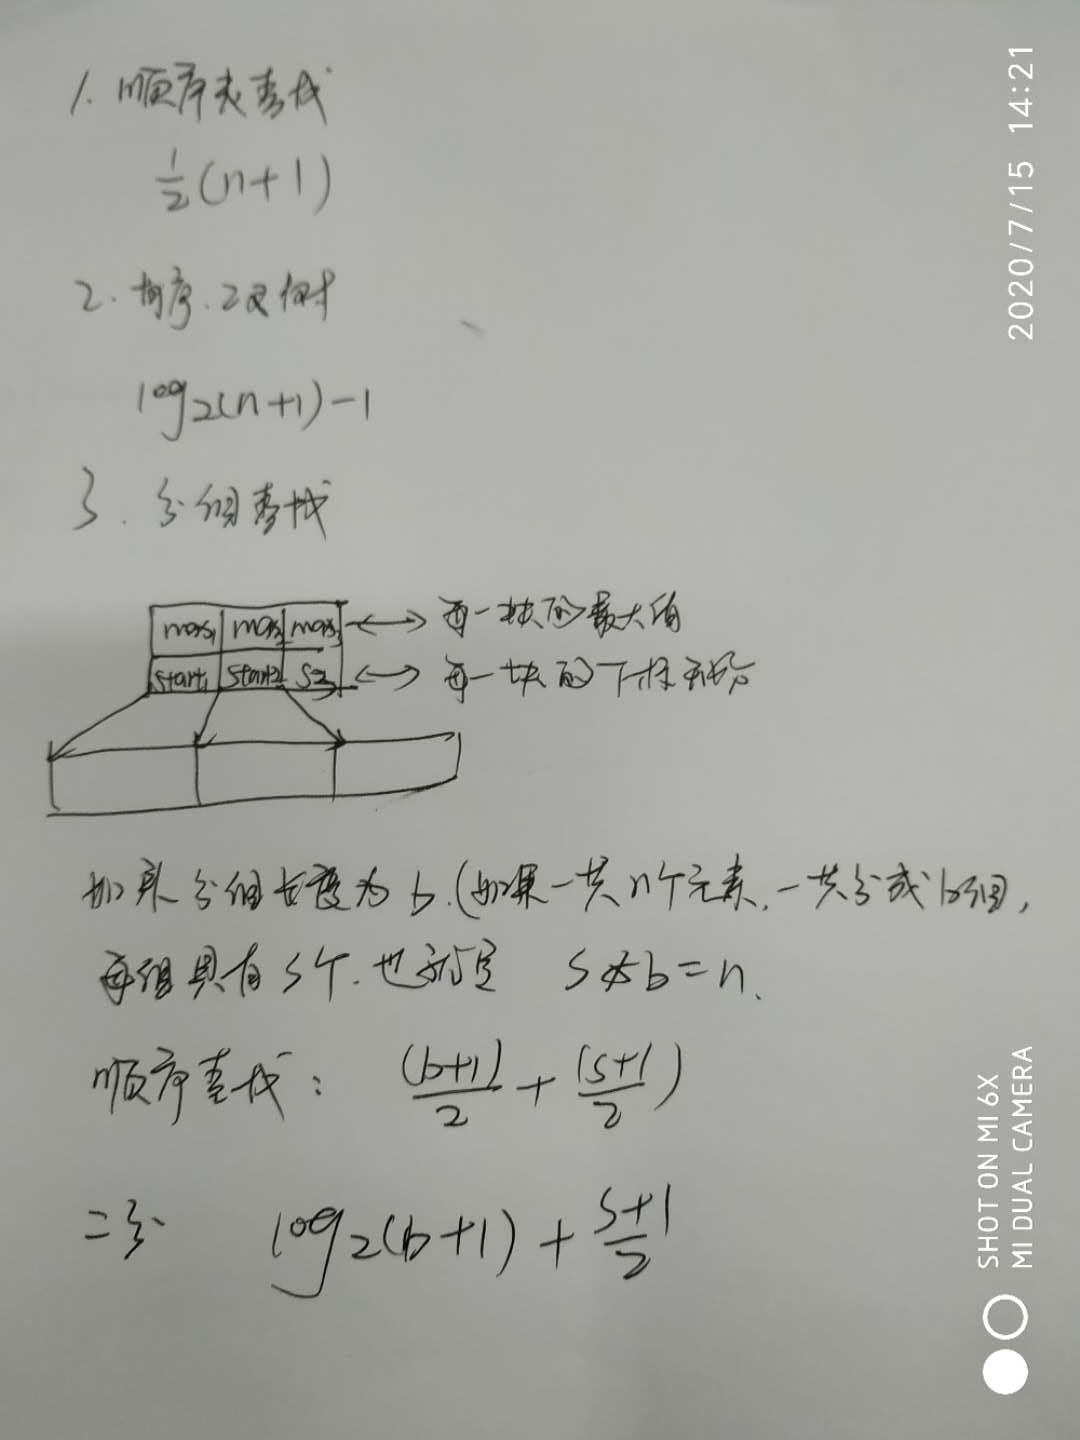 1. 顺序表查找
½(n+1)
2. 有序.二叉树
log₂(n+1)-1
3. 分组查找
max₁ max₂ max₃ ⟷ 每一块的最大值
start₁ start2 S3 ⟷ 每一块的下标
如果分组长度为 b.(如果一共n个元素,一共分成b组,
每组具有s个.也就是 s*b=n.
顺序查找: (b+1)/2 + (s+1/2)
二分 log₂(b+1)+ s+1/2
2020/7/15 14:21
SHOT ON MI 6X
MI DUAL CAMERA